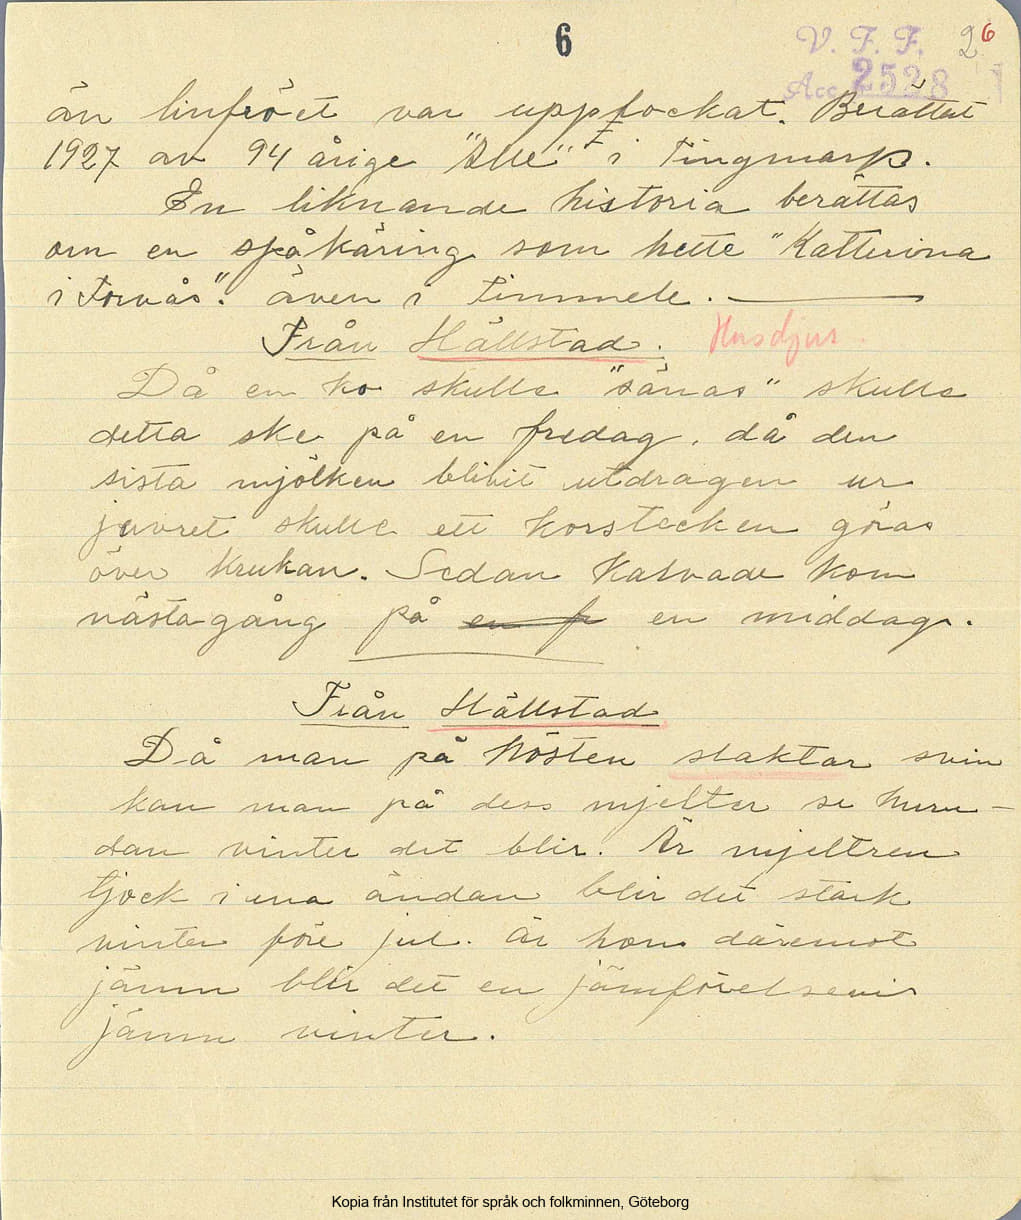 6
V. F. F.
Acc 2528
26
än linfröet var uppplockat. Berättat
1927 av 94 årige "Alle" i Tingmarp.
En liknande historia berättas
om en spåkäring som hette "Katterina
i Torvås". även i Timmele.
Från Hällstad. Husdjur.
Då en ko skulle "sänas" skulle
detta ske på en fredag, då den
sista mjölken blivit utdragen ur
juvret skulle ett korstecken göras
över krukan. Sedan kalvade kon
nästa gång på en f en middag.
Från Hällstad
Då man på hösten slaktar svin
kan man på dess mjelter se huru-
dan vinter det blir. Är mjeltren
tjock i ena ändan blir det stark
vinter före jul. Är hon däremot
jämn blir det en jämförelsevis
jämn vinter.
Kopia från Institutet för språk och folkminnen, Göteborg